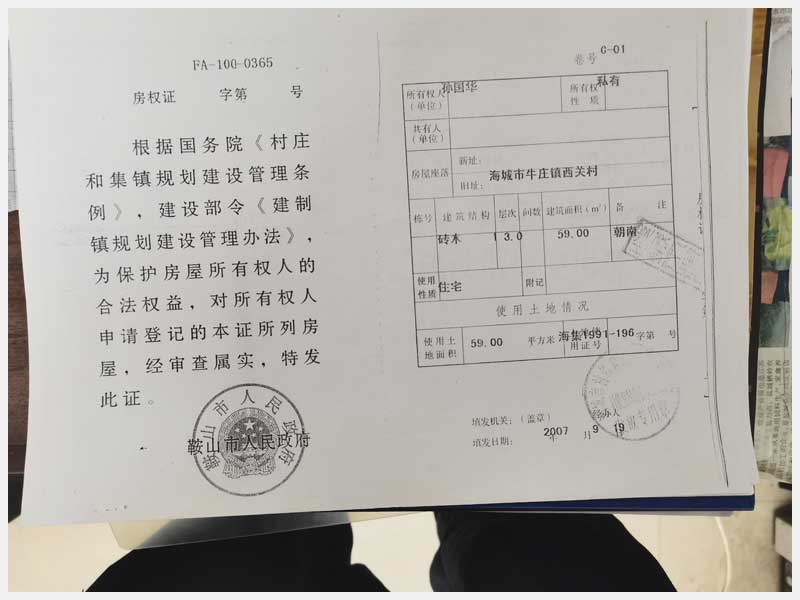 FA-100-0365
房权证 字第 号
根据国务院《村庄
和集镇规划建设管理条
例》，建设部令《建制
镇规划建设管理办法》，
为保护房屋所有权人的
合法权益，对所有权人
申请登记的本证所列房
屋，经审查属实，特发
此证。
鞍山市人民政府
鞍山市人民政府
卷号 C-01
所有权人（单位） 孙国华 所有权性质 私有
共有人（单位）
房屋座落 新址：
旧址： 海城市牛庄镇西关村
栋号 建筑结构 层次 间数 建筑面积（m²） 备 注
砖木 1 3.0 59.00 朝南
使用性质 住宅 附记
使用土地情况
使用土地面积 59.00 平方米 用证号 海集1991-196 字第 号
填发机关：（盖章） 经办人
填发日期： 2007 年 9 月 19